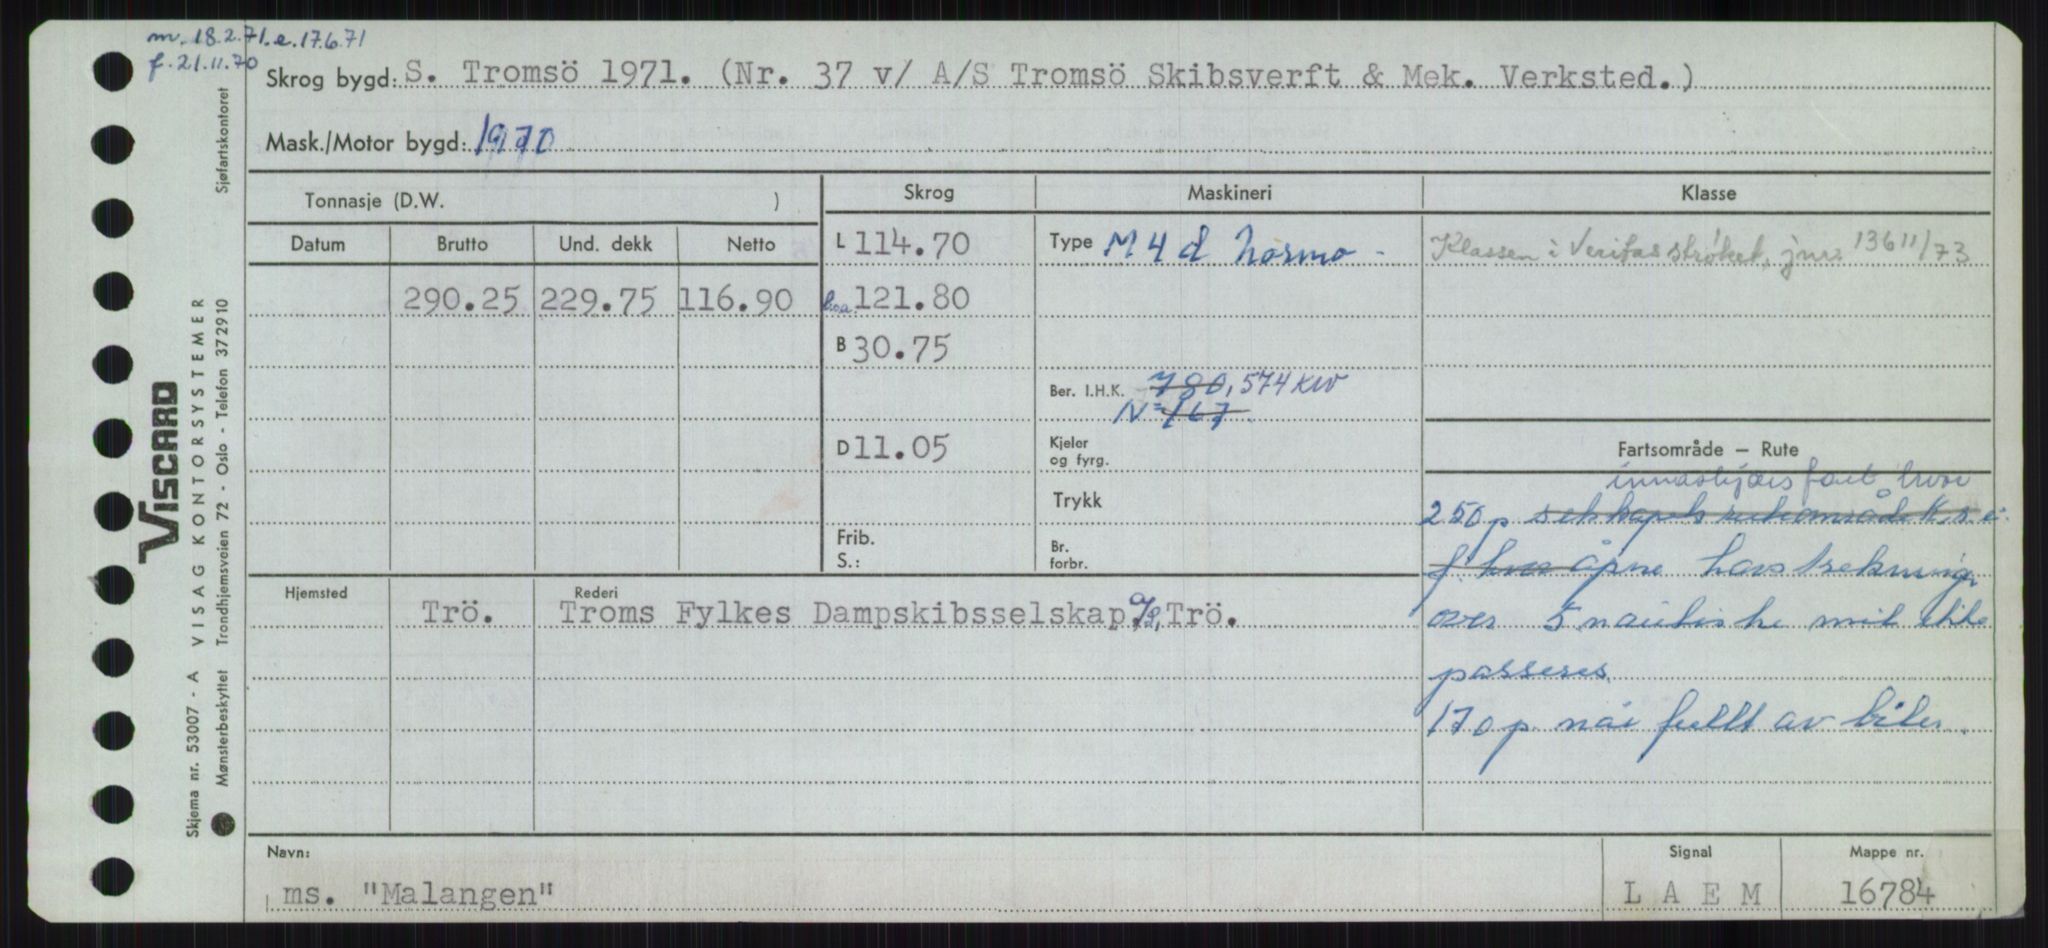 m. 18.2.71. e. 17.6.71
f. 21.11.70
Skrog bygd: S. Tromsö 1971. (Nr. 37 v/ A/S Tromsö Skibsverft & Mek. Verksted.)
Mask./Motor bygd: 1970
Tonnasje (D.W. )
Skrog
Maskineri
Klasse
Datum Brutto Und. dekk Netto
L 114.70
Type M 4 d Normo -
Klassen i Veritas strøket, jnr. 13611/73
290.25 229.75 116.90
loa. 121.80
B 30.75
Ber. I.H.K. 780, 574 KW
N = 167
D 11.05
Kjeler
og fyrg.
Trykk
Frib.
S.:
Br.
forbr.
Fartsområde — Rute
innaskjærs fart, hvor
250 p selskapets ruteområde
f. hvor åpne havstrekning
over 5 nautiske mil ikke
passeres.
170 p. når fullt av biler.
Hjemsted
Rederi
Trö. Troms Fylkes Dampskibsselskap A/S, Trö.
Navn:
ms. "Malangen"
Signal
L A E M
Mappe nr.
16784
Sjøfartskontoret
VISCARD
VISAG KONTORSYSTEMER
Trondhjemsveien 72 - Oslo - Telefon 372910
Skjema nr. 53007 - A
Mønsterbeskyttet